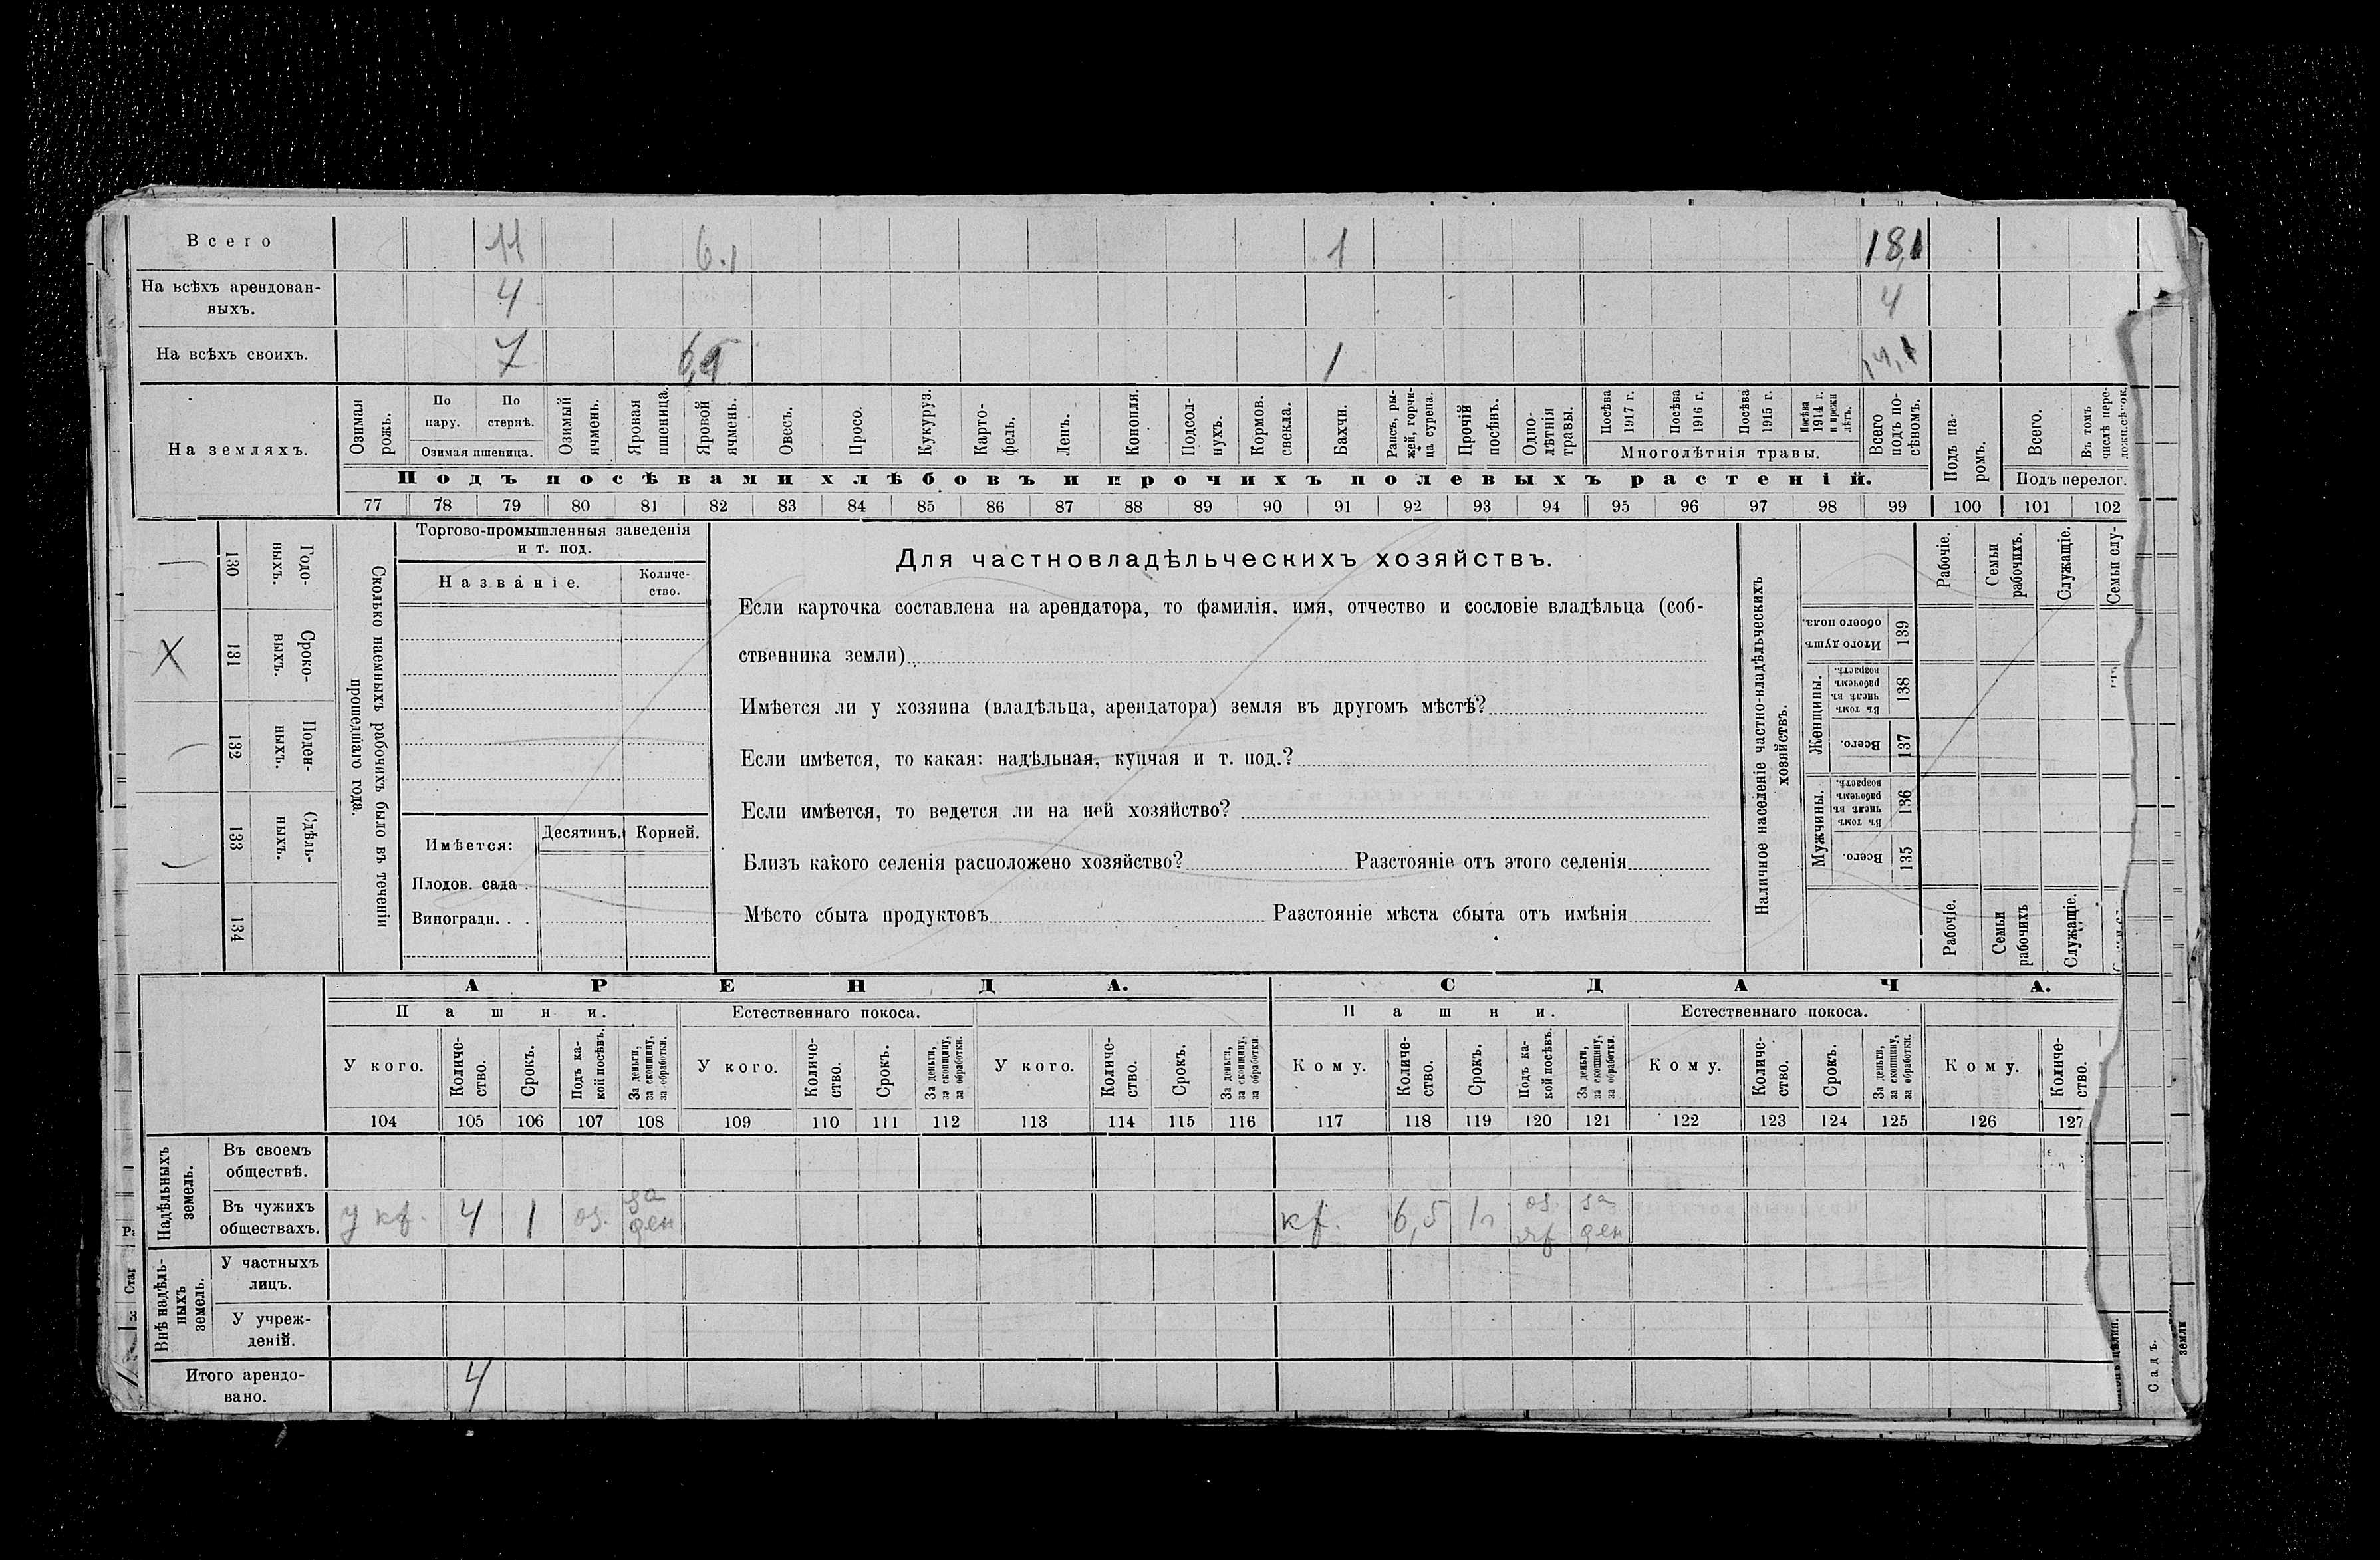 Всего 11 6.1 1 18,1
На всѣхъ арендован-
ныхъ. 4 4
На всѣхъ своихъ. 7 1 14,1
На земляхъ.
Озимая рожь.
По пару.
По стернѣ.
Озимая пшеница.
Озимый ячмень.
Яровая пшеница.
Яровой ячмень.
Овесъ.
Просо.
Кукуруз.
Карто-
фель.
Ленъ.
Конопля.
Подсол-
нухъ.
Кормов. свекла.
Бахчи.
Рапсъ, ры-
жей, горчи-
ца сурепа.
Прочій посѣвъ.
Одно-
лѣтнія травы.
Посѣва 1917 г.
Посѣва 1916 г.
Посѣва 1915 г.
Посѣва 1914 г. и прежн лѣтъ.
Многолѣтнія травы.
Всего подъ по-
сѣвомъ.
Подъ па-
ромъ.
Всего.
Въ томъ числѣ пере-
Подъ посѣвами хлѣбовъ и прочихъ полевыхъ растеній.
Подъ перелог.
77 78 79 80 81 82 83 84 85 86 87 88 89 90 91 92 93 94 95 96 97 98 99 100 101 102
130 Годо-
выхъ.
X 131 Сроко-
выхъ.
132 Поден-
ныхъ.
133 Сдѣль-
ныхъ.
134
Сколько наемныхъ рабочихъ было въ теченіи
прошедшаго года.
Торгово-промышленныя заведенія
и т. под.
Названіе. Количе-
ство.
Имѣется: Десятин. Корней.
Плодов. сада
Виноградн. . .
Для частновладѣльческихъ хозяйствъ.
Если карточка составлена на арендатора, то фамилія, имя, отчество и сословіе владѣльца (соб-
ственника земли)
Имѣется ли у хозяина (владѣльца, арендатора) земля въ другомъ мѣстѣ?
Если имѣется, то какая: надѣльная, купчая и т. под.?
Если имѣется, то ведется ли на ней хозяйство?
Близъ какого селенія расположено хозяйство? Разстояніе отъ этого селенія
Мѣсто сбыта продуктовъ Разстояніе мѣста сбыта отъ имѣнія
Наличное населеніе частно-владѣльческихъ
хозяйствъ.
Рабочіе.
Семьи рабочихъ.
Служащіе.
Семьи слу-
Итого душъ обоего пола. 139
Женщины.
Въ томъ числѣ въ рабочемъ возрастѣ. 138
Всего. 137
Мужчины.
Въ томъ числѣ въ рабочемъ возрастѣ. 136
Всего. 135
Рабочіе.
Семьи рабочихъ
Служащіе.
АРЕНДА. СДАЧА.
Пашни. Естественнаго покоса. Пашни. Естественнаго покоса.
У кого.
Количе-
ство.
Срокъ.
Подъ ка-
кой посѣвъ.
За деньги,
за скопщину,
за обработки.
У кого.
Количе-
ство.
Срокъ.
За деньги,
за скопщину,
за обработки.
У кого.
Количе-
ство.
Срокъ.
За деньги,
за скопщину,
за обработки.
Кому.
Количе-
ство.
Срокъ.
Подъ ка-
кой посѣвъ.
За деньги,
за скопщину,
за обработки.
Кому.
Количе-
ство.
Срокъ.
За деньги,
за скопщину,
за обработки.
Кому.
Количе-
ство.
104 105 106 107 108 109 110 111 112 113 114 115 116 117 118 119 120 121 122 123 124 125 126 127
Надѣльныхъ земель.
Въ своемъ
обществѣ.
Въ чужихъ
обществахъ. у кр. 4 1 оз. за ден кр. 6,5 1 г оз. яр за ден
Внѣ надѣль-
ныхъ земель.
У частныхъ
лицъ.
У учреж-
деній.
Итого арендо-
вано. 4
Садъ.
земли